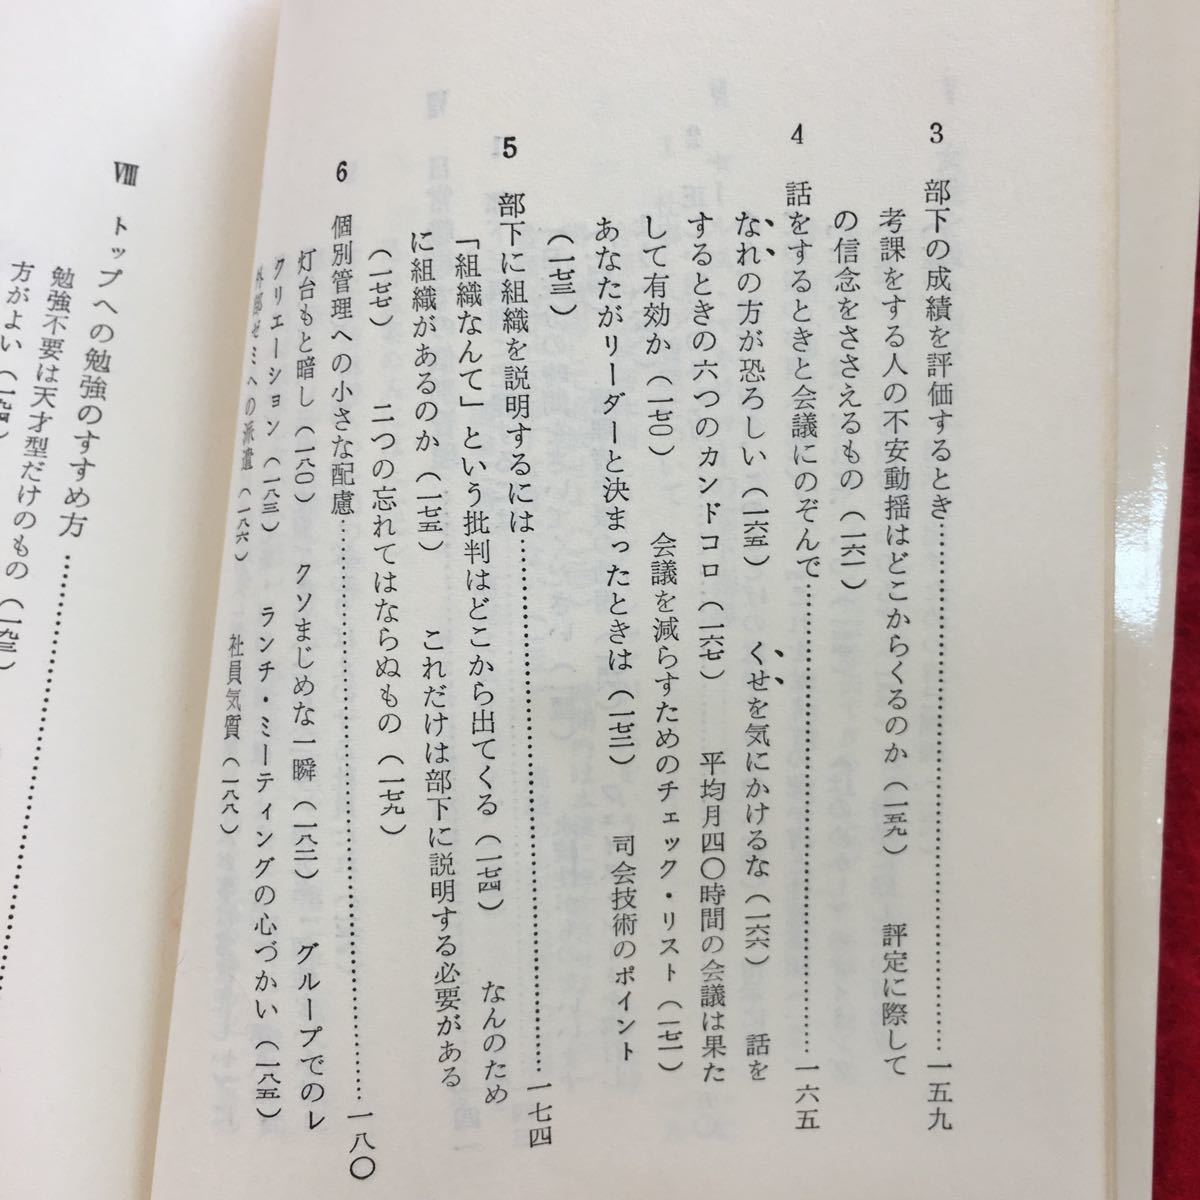 3 部下の成績を評価するとき…………………………一五九
考課をする人の不安動揺はどこからくるのか（一五九） 評定に際して
の信念をささえるもの（一六一）
4 話をするときと会議にのぞんで…………………………一六五
なれの方が恐ろしい（一六五） くせを気にかけるな（一六六） 話を
するときの六つのカンドコロ（一六七） 平均月四〇時間の会議は果た
して有効か（一七〇） 会議を減らすためのチェック・リスト（一七一）
あなたがリーダーと決まったときは（一七二） 司会技術のポイント
（一七三）
5 部下に組織を説明するには…………………………一七四
「組織なんて」という批判はどこから出てくる（一七四） なんのため
に組織があるのか（一七五） これだけは部下に説明する必要がある
（一七七） 二つの忘れてはならぬもの（一七九）
6 個別管理への小さな配慮…………………………一八〇
灯台もと暗し（一八〇） クソまじめな一瞬（一八二） グループでのレ
クリエーション（一八三） ランチ・ミーティングの心づかい（一八五）
外部ゼミへの派遣（一八六） 社員気質（一八八）
Ⅷ トップへの勉強のすすめ方…………………………
勉強不要は天才型だけのもの（一九三）
方がよい（一九四）